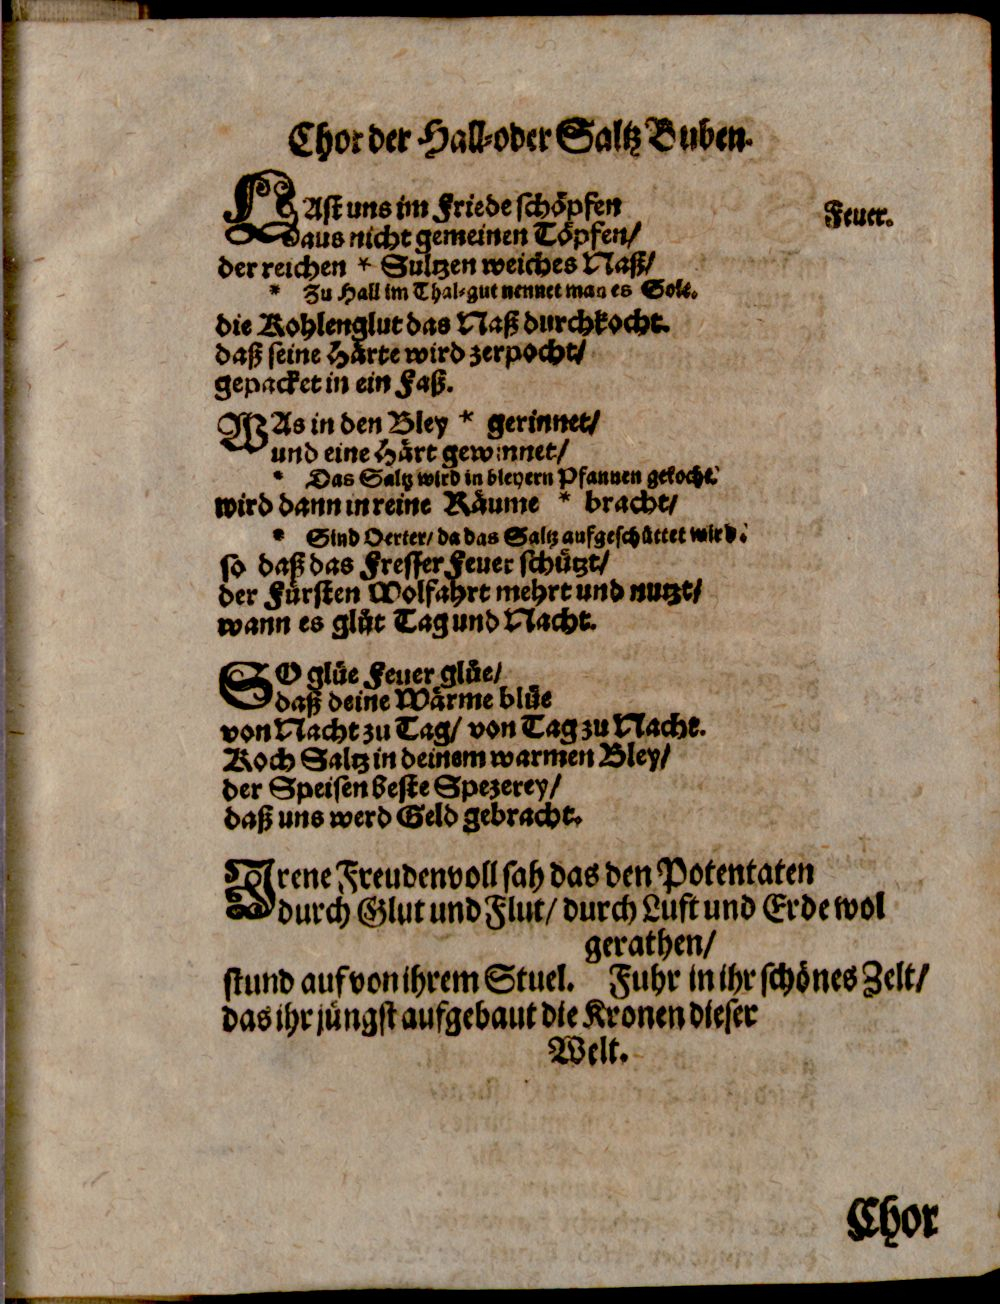 Chor der Hall-oder Saltz Buben.
LAst uns im Friede schöpfen
Feuer.
aus nicht gemeinen Töpfen/
der reichen * Sultzen weiches Naß/
* Zu Hall im Thal-gut nennet man es Sole.
die Kohlenglut das Naß durchkocht.
daß seine Härte wird zerpocht/
gepacket in ein Faß.
WAs in den Bley * gerinnet/
und eine Härt gewinnet/
* Das Saltz wird in bleyern Pfannen gekocht.
wird dann in reine Räume * bracht/
* Sind Oerter/ da das Saltz aufgeschüttet wird.
so daß das Fresser Feuer schützt/
der Fürsten Wolfahrt mehrt und nutzt/
wann es glüt Tag und Nacht.
SO glüe Feuer glüe/
daß deine Wärme blüe
von Nacht zu Tag/ von Tag zu Nacht.
Koch Saltz in deinem warmen Bley/
der Speisen beste Spezerey/
daß uns werd Geld gebracht.
Irene Freudenvoll sah das den Potentaten
durch Glut und Flut/ durch Luft und Erde wol
gerathen/
stund auf von ihrem Stuel. Fuhr in ihr schönes Zelt/
das ihr jüngst aufgebaut die Kronen dieser
Welt.
Chor